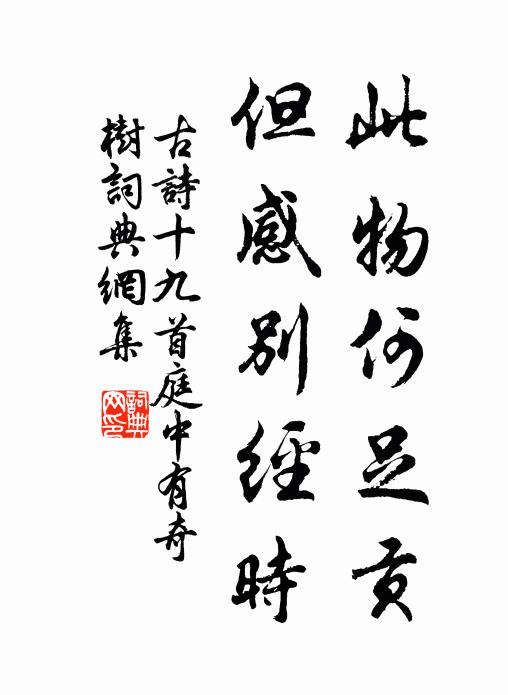 此物何足貢
但感別經時
古詩十九首庭中有奇
樹詞典網集
詞典
网印